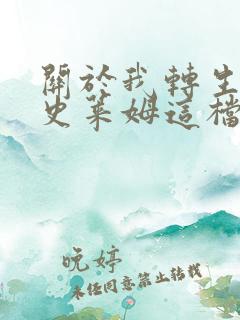 關於我轉生
史萊姆這檔
晚婷
未經同意禁止轉載